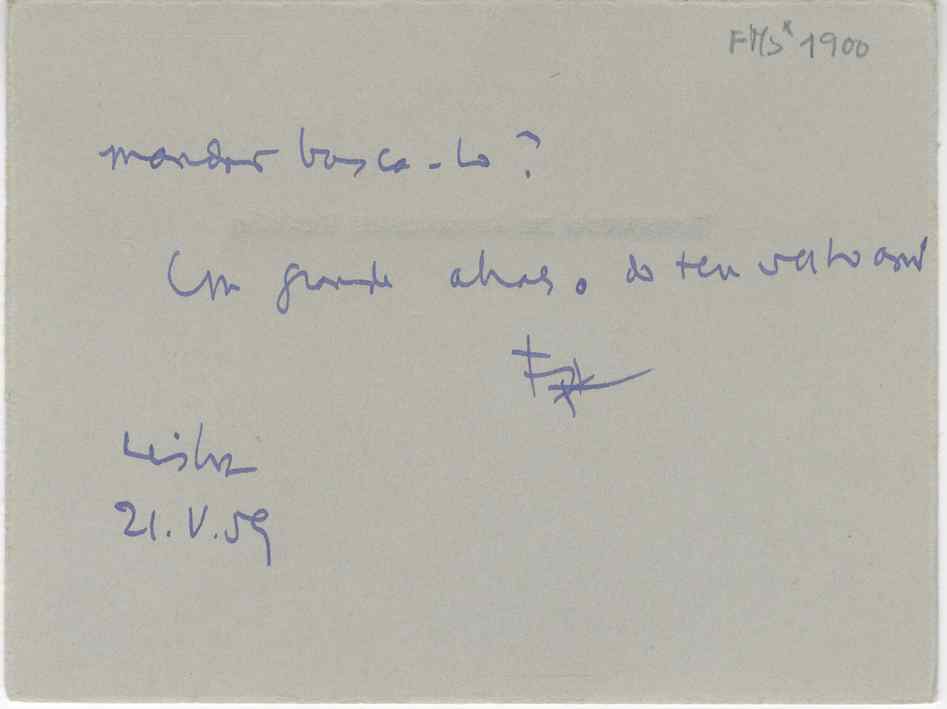 FMS* 1900
mandar busca-lo?
Um grande abraço do teu velho am
Lisboa
21.V.59